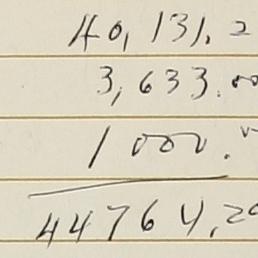 40,131.2
3,633.00
1000.00
44764.20